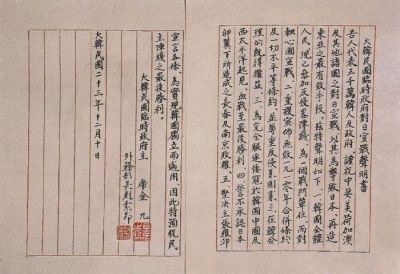 大韓民國臨時政府對日宣戰聲明書
吾人代表三千萬韓人及政府、謹祝中英美荷加澳
及其他諸國之對日宣戰、以其為擊敗日本、再造
東亞之最有效手段、茲特聲明如下、一、韓國全體
人民、現已參加反侵略陣線、為一個戰鬥單位、而對
軸心國宣戰、二、重複宣佈無效一九一○年合併條約
及一切不平等條約、並尊重反侵略國家之在韓合
理的既得權益、三、為完全驅逐倭寇於韓國中國及
西太平洋起見、血戰至最後勝利、四、誓不承認日本
卵翼下所造成之長春及南京政權、五、堅決主張羅邱
宣言各條、為實現韓國獨立而適用、因此特預祝民
主陣線之最後勝利。
大韓民國臨時政府主席金九
外務部長趙素昂
大韓民國二十三年十二月十日